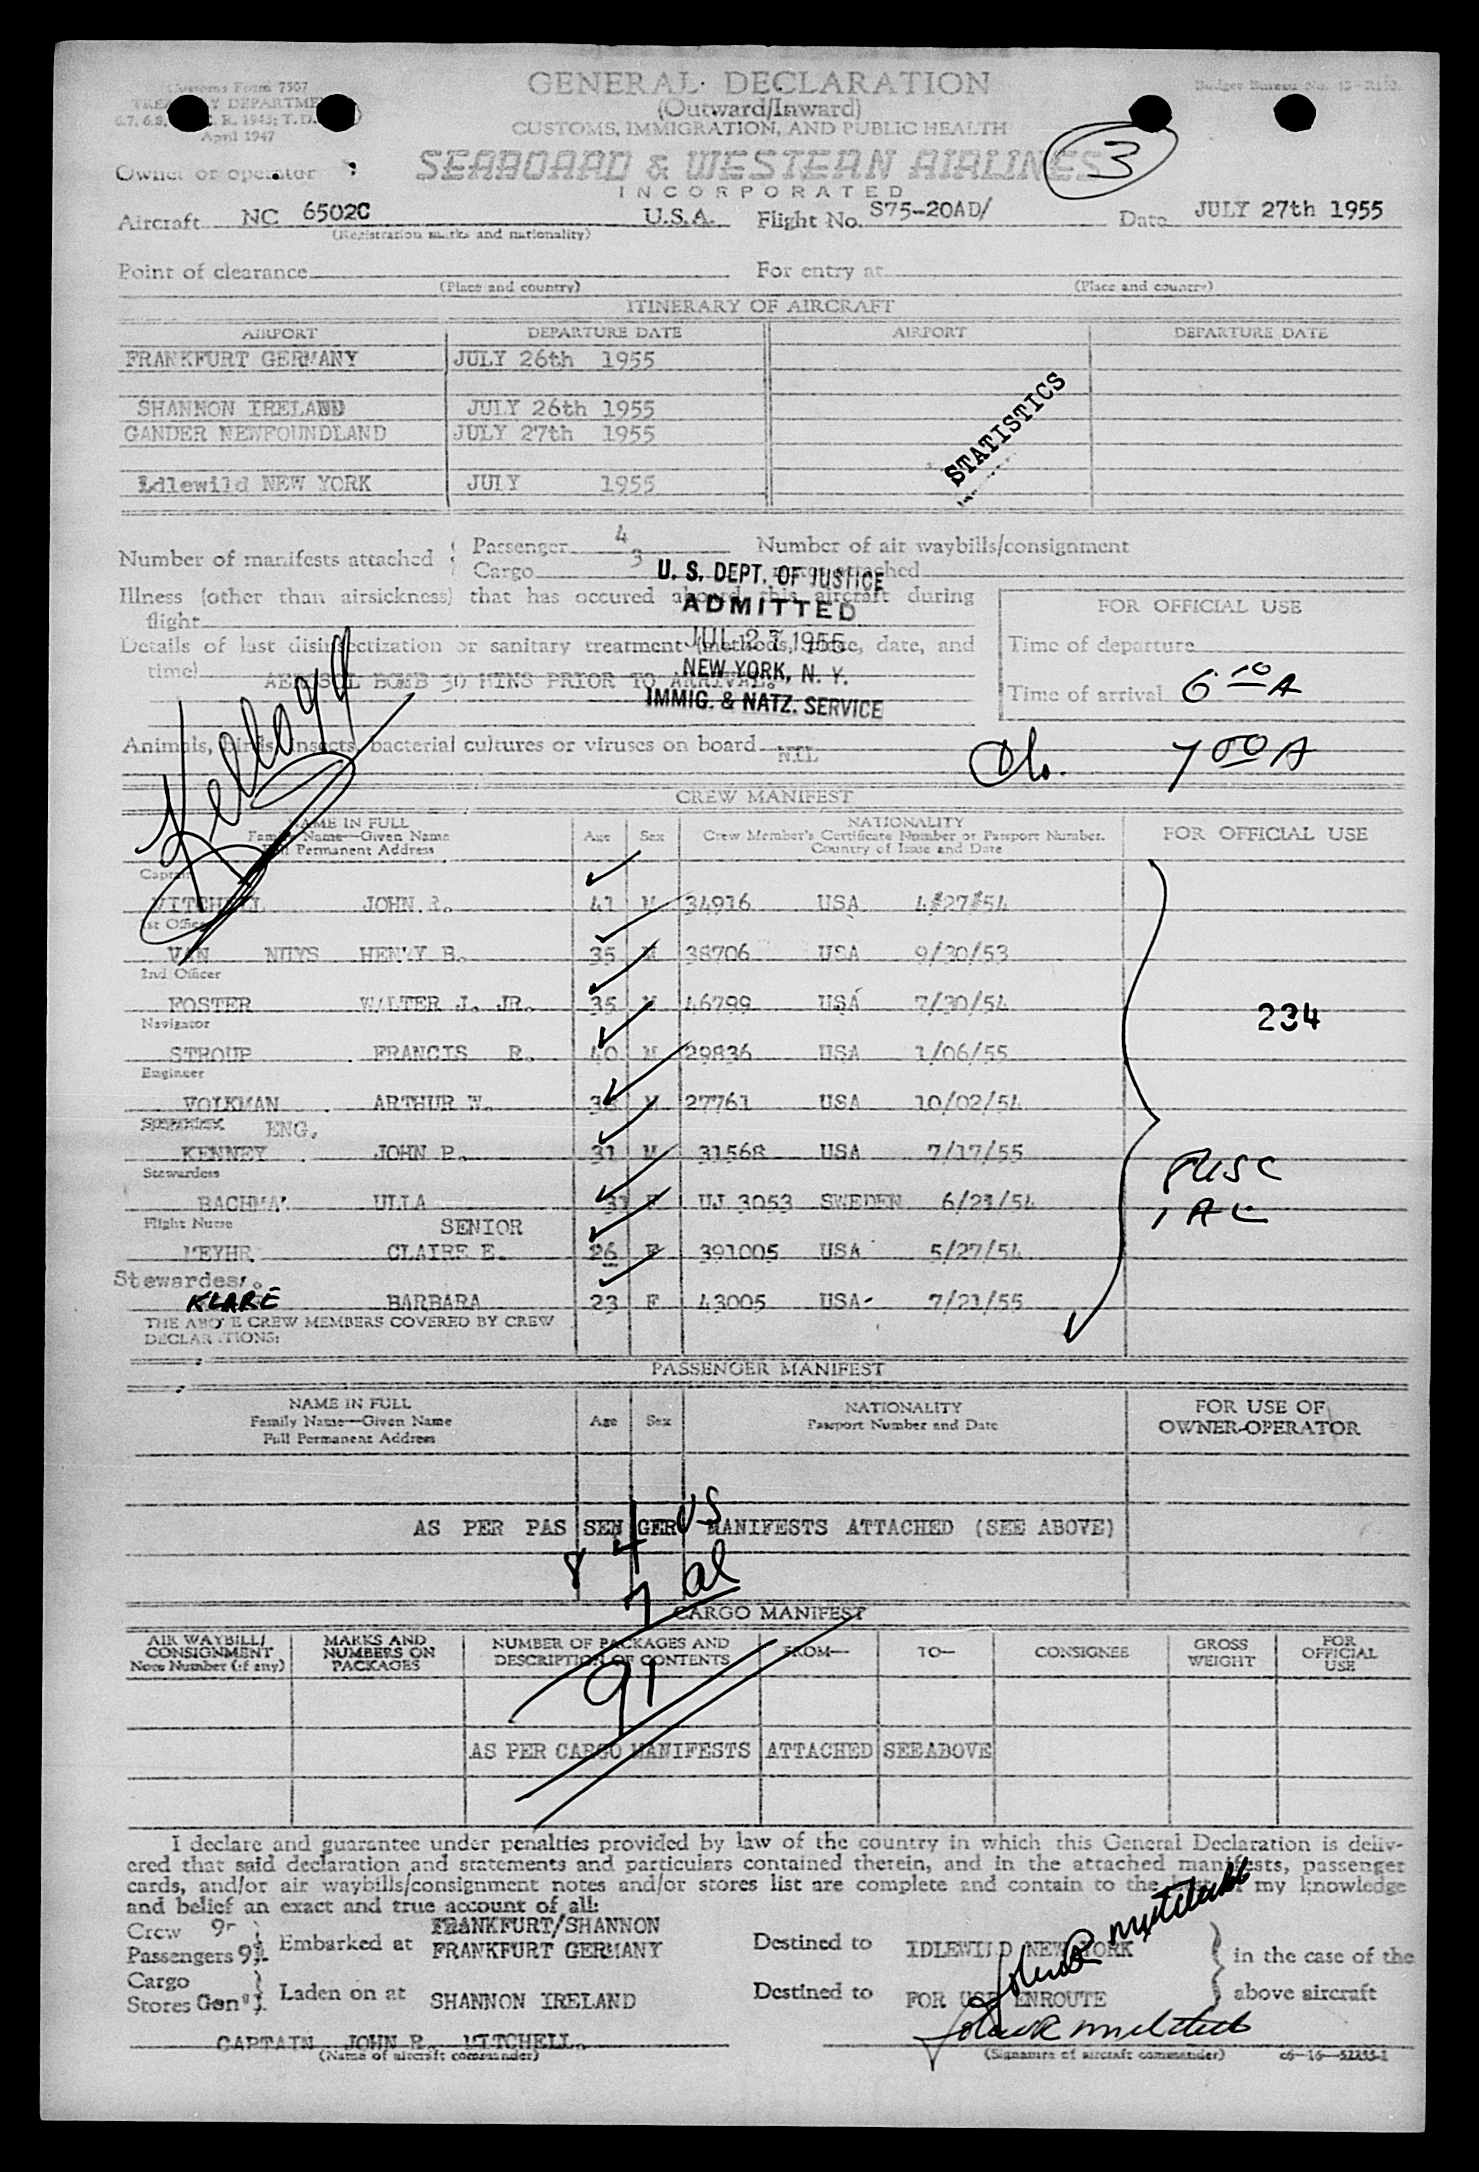 Customs Form 7507
GENERAL DECLARATION
TREASURY DEPARTMENT
(Outward/Inward)
April 1947
CUSTOMS, IMMIGRATION, AND PUBLIC HEALTH
Owner or operator
SEABOARD & WESTERN AIRLINES
3
INCORPORATED
Aircraft NC 6502C U.S.A. Flight No. S75-20AD/ Date JULY 27th 1955
(Registration marks and nationality)
Point of clearance For entry at
(Place and country) (Place and country)
ITINERARY OF AIRCRAFT
AIRPORT DEPARTURE DATE AIRPORT DEPARTURE DATE
FRANKFURT GERMANY JULY 26th 1955
SHANNON IRELAND JULY 26th 1955
GANDER NEWFOUNDLAND JULY 27th 1955
STATISTICS
Idlewild NEW YORK JULY 1955
Number of manifests attached Passenger 4 Number of air waybills/consignment
Cargo 3 attached
U. S. DEPT. OF JUSTICE
ADMITTED
JUL 27 1955
NEW YORK, N. Y.
IMMIG. & NATZ. SERVICE
Illness (other than airsickness) that has occured aboard this aircraft during
flight
FOR OFFICIAL USE
Details of last disinsectization or sanitary treatment (methods, place, date, and
time) AEROSOL BOMB 30 MINS PRIOR TO ARRIVAL.
Time of departure
Time of arrival 6 10 A
Kellogg
Animals, birds, insects, bacterial cultures or viruses on board NIL
7 00 A
CREW MANIFEST
NAME IN FULL
Family Name—Given Name
Full Permanent Address
Age Sex
NATIONALITY
Crew Member's Certificate Number or Passport Number.
Country of Issue and Date
FOR OFFICIAL USE
Captain
MITCHELL JOHN R. 41 M 34916 USA 4/27/54
1st Officer
VAN NUYS HENRY B. 35 M 38706 USA 9/30/53
2nd Officer
FOSTER WALTER J. JR. 35 M 46799 USA 7/30/54
234
Navigator
STROUP FRANCIS R. 40 M 29836 USA 1/06/55
Engineer
VOLKMAN ARTHUR W. 38 M 27761 USA 10/02/54
ENG.
KENNEY JOHN P. 31 M 31568 USA 7/17/55
Stewardess
BACHMAN ULLA 31 F UJ 3053 SWEDEN 6/21/54
Flight Nurse SENIOR
CLAIRE E. 26 F 391005 USA 5/27/54
Stewardess.
KLARE BARBARA 23 F 43005 USA 7/21/55
THE ABOVE CREW MEMBERS COVERED BY CREW
DECLARATIONS:
PASSENGER MANIFEST
NAME IN FULL
Family Name—Given Name
Full Permanent Address
Age Sex
NATIONALITY
Passport Number and Date
FOR USE OF
OWNER-OPERATOR
AS PER PASSENGER MANIFESTS ATTACHED (SEE ABOVE)
84 US
7 al
91
CARGO MANIFEST
AIR WAYBILL/
CONSIGNMENT
Note Number (if any)
MARKS AND
NUMBERS ON
PACKAGES
NUMBER OF PACKAGES AND
DESCRIPTION OF CONTENTS
FROM— TO— CONSIGNEE
GROSS
WEIGHT
FOR
OFFICIAL
USE
AS PER CARGO MANIFESTS ATTACHED SEE ABOVE
I declare and guarantee under penalties provided by law of the country in which this General Declaration is deliv-
ered that said declaration and statements and particulars contained therein, and in the attached manifests, passenger
cards, and/or air waybills/consignment notes and/or stores list are complete and contain to the best of my knowledge
and belief an exact and true account of all:
Crew 9 FRANKFURT/SHANNON
Passengers 91 Embarked at FRANKFURT GERMANY Destined to IDLEWILD NEW YORK in the case of the
Cargo
Stores Gen'l. Laden on at SHANNON IRELAND Destined to FOR USE ENROUTE above aircraft
John R Mitchell
CAPTAIN JOHN R. MITCHELL. John R Mitchell
(Name of aircraft commander) (Signature of aircraft commander)